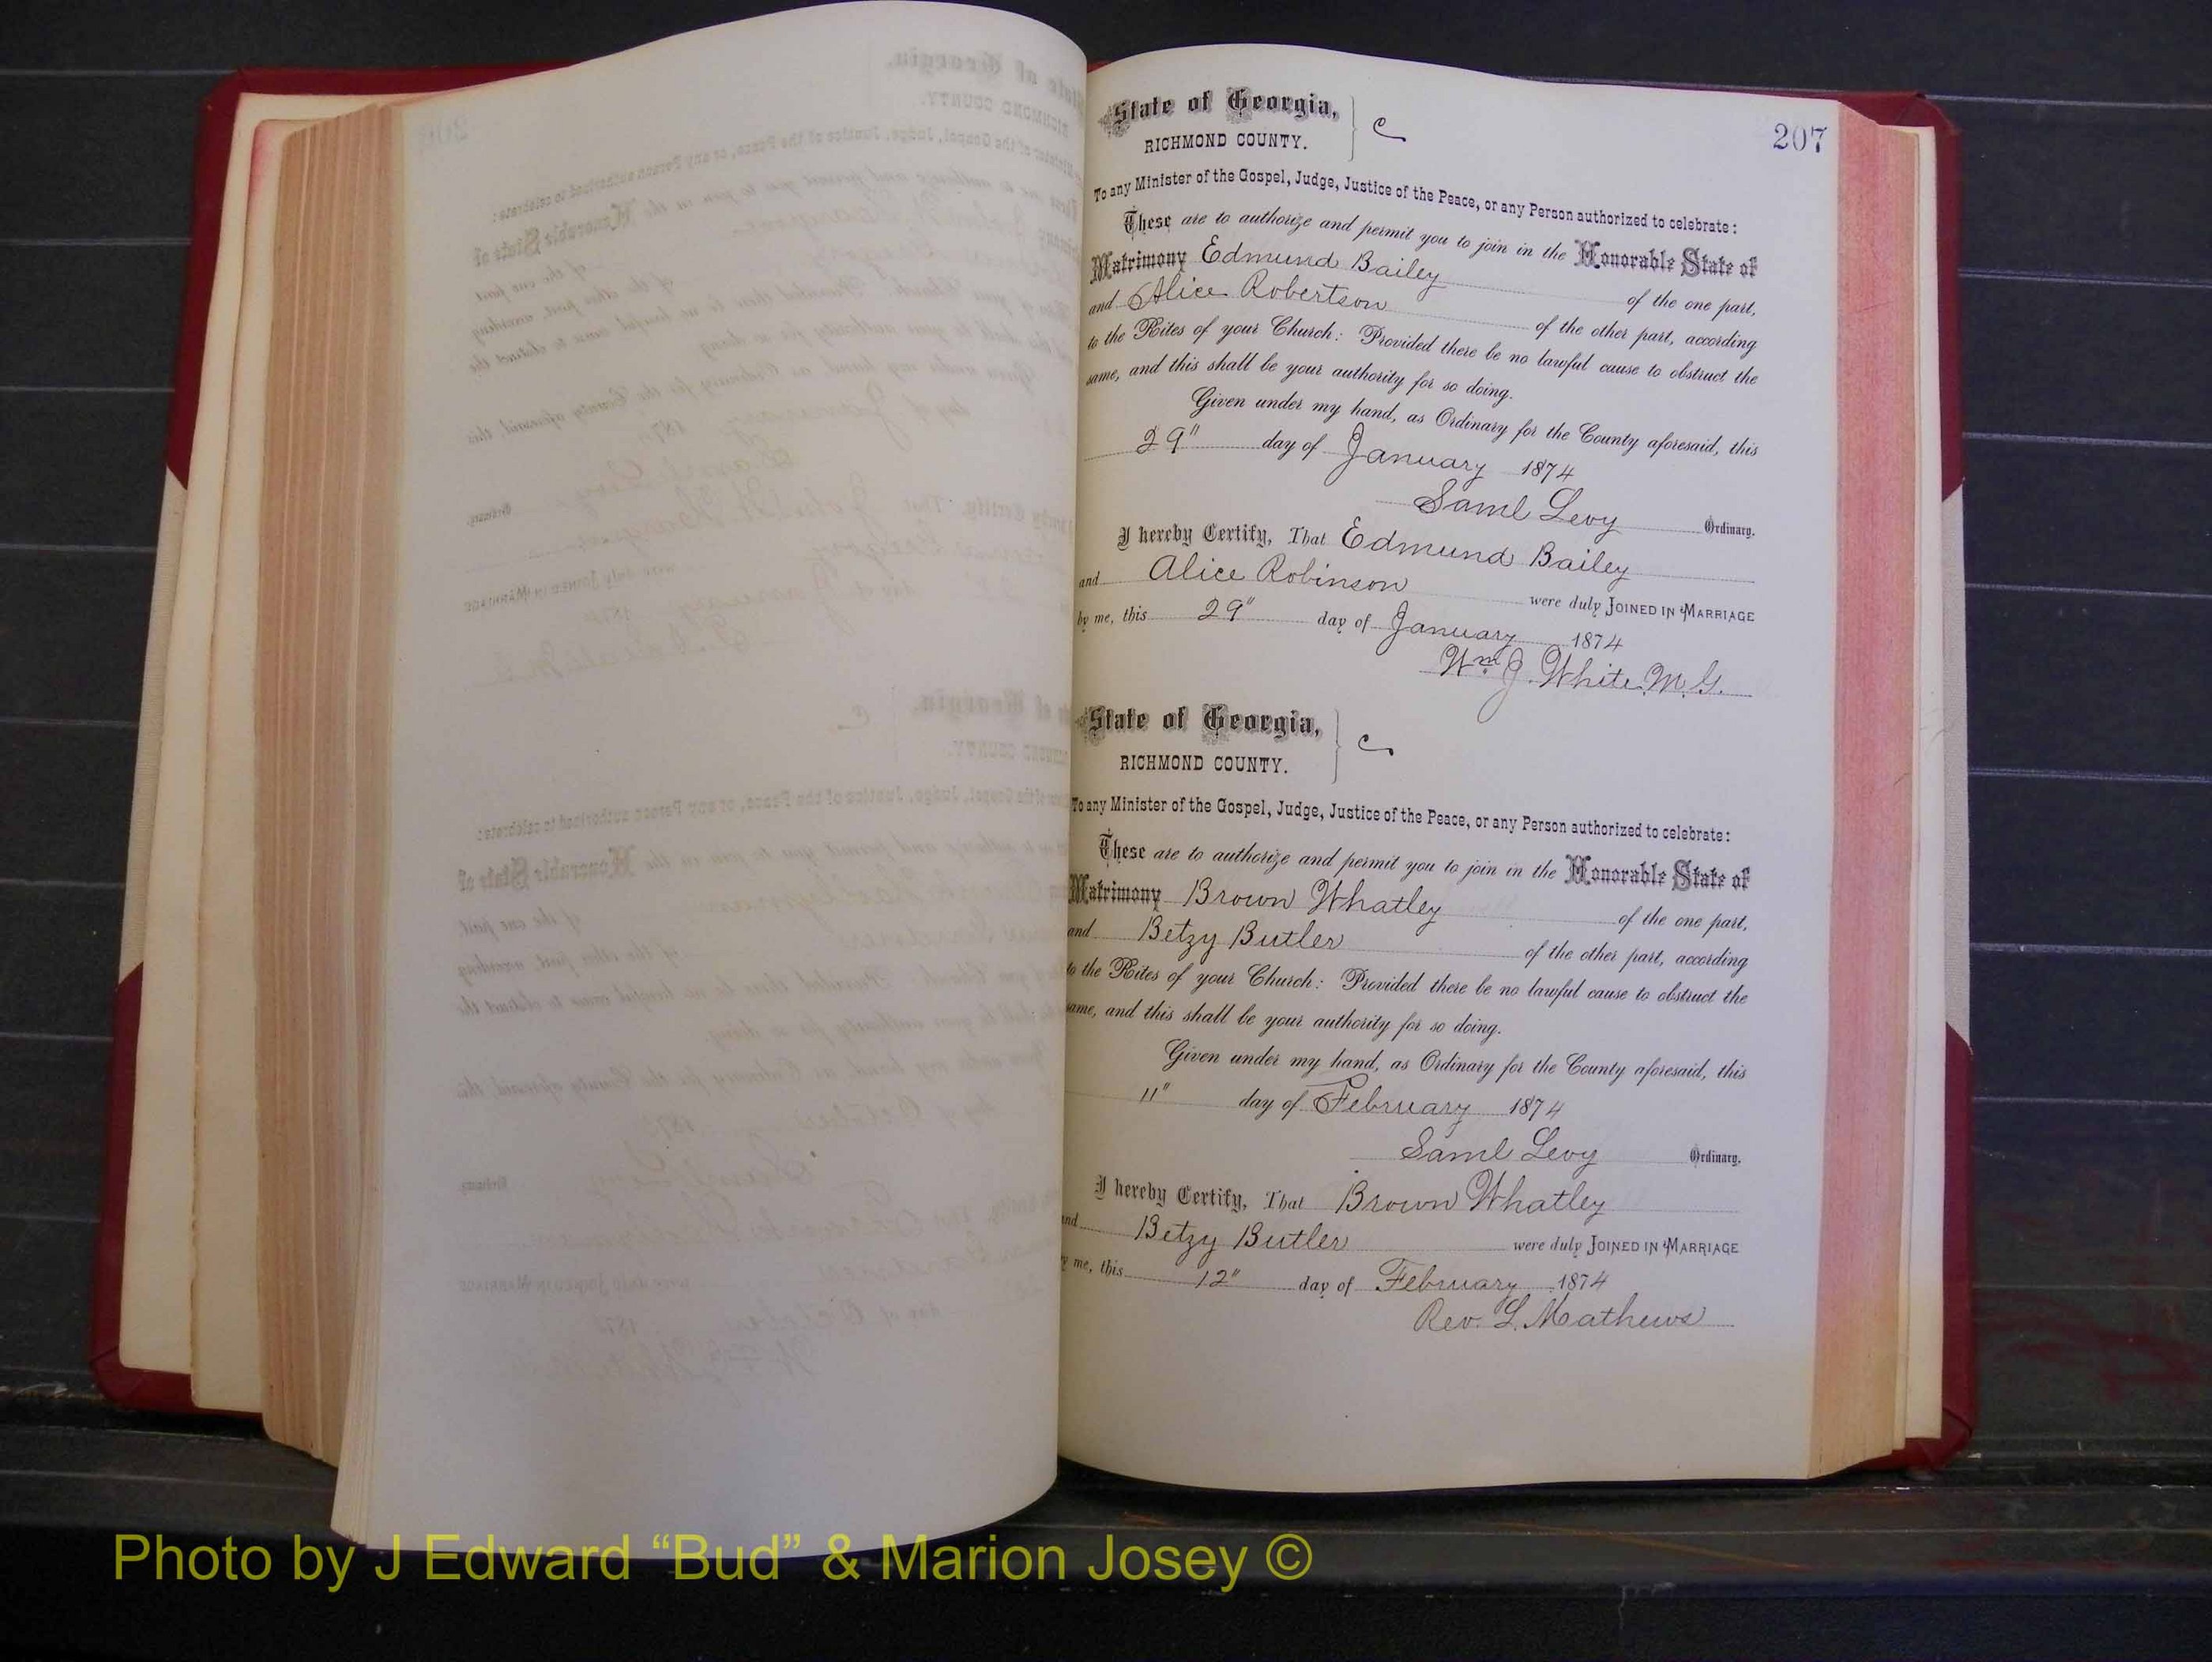 207
State of Georgia,
RICHMOND COUNTY.
C
To any Minister of the Gospel, Judge, Justice of the Peace, or any Person authorized to celebrate:
These are to authorize and permit you to join in the Honorable State of
Matrimony Edmund Bailey of the one part,
and Alice Robertson of the other part, according
to the Rites of your Church: Provided there be no lawful cause to obstruct the
same, and this shall be your authority for so doing.
Given under my hand, as Ordinary for the County aforesaid, this
29" day of January 1874
Saml Levy Ordinary.
I hereby Certify, That Edmund Bailey
and Alice Robinson were duly JOINED IN MARRIAGE
by me, this 29" day of January 1874
Wm J. White, M. G.
State of Georgia,
RICHMOND COUNTY.
C
To any Minister of the Gospel, Judge, Justice of the Peace, or any Person authorized to celebrate:
These are to authorize and permit you to join in the Honorable State of
Matrimony Brown Whatley of the one part,
and Betzy Butler of the other part, according
to the Rites of your Church: Provided there be no lawful cause to obstruct the
same, and this shall be your authority for so doing.
Given under my hand, as Ordinary for the County aforesaid, this
11" day of February 1874
Saml Levy Ordinary.
I hereby Certify, That Brown Whatley
and Betzy Butler were duly JOINED IN MARRIAGE
by me, this 12" day of February 1874
Rev. L. Mathews
Photo by J Edward “Bud” & Marion Josey ©